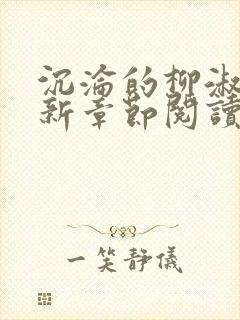 沉淪的柳淑
新章節閱讀
一笑靜儀